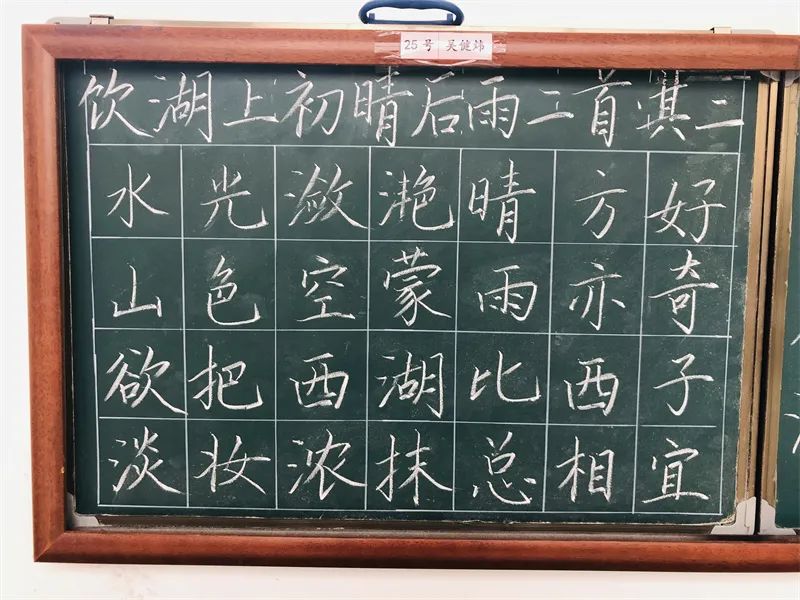 25号 吴健炜
饮湖上初晴后雨二首其二
水光潋滟晴方好
山色空蒙雨亦奇
欲把西湖比西子
淡妆浓抹总相宜